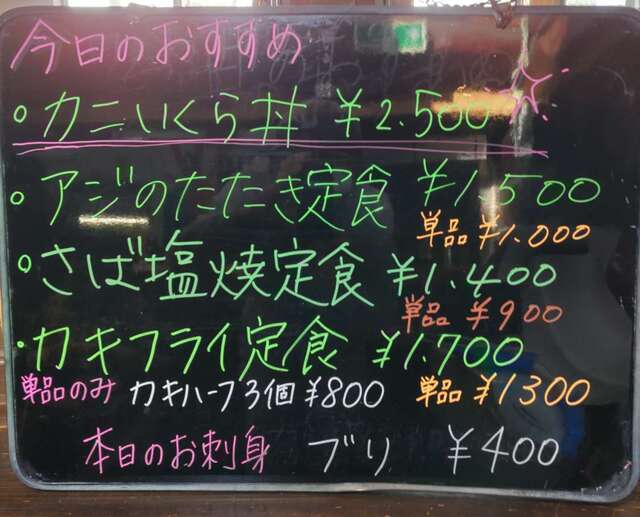 今日のおすすめ
・カニいくら丼 ¥2.500
・アジのたたき定食 ¥1.500
単品 ¥1.000
・さば塩焼定食 ¥1.400
単品 ¥900
・カキフライ定食 ¥1.700
単品のみ カキハーフ3個 ¥800 単品 ¥1300
本日のお刺身 ブリ ¥400